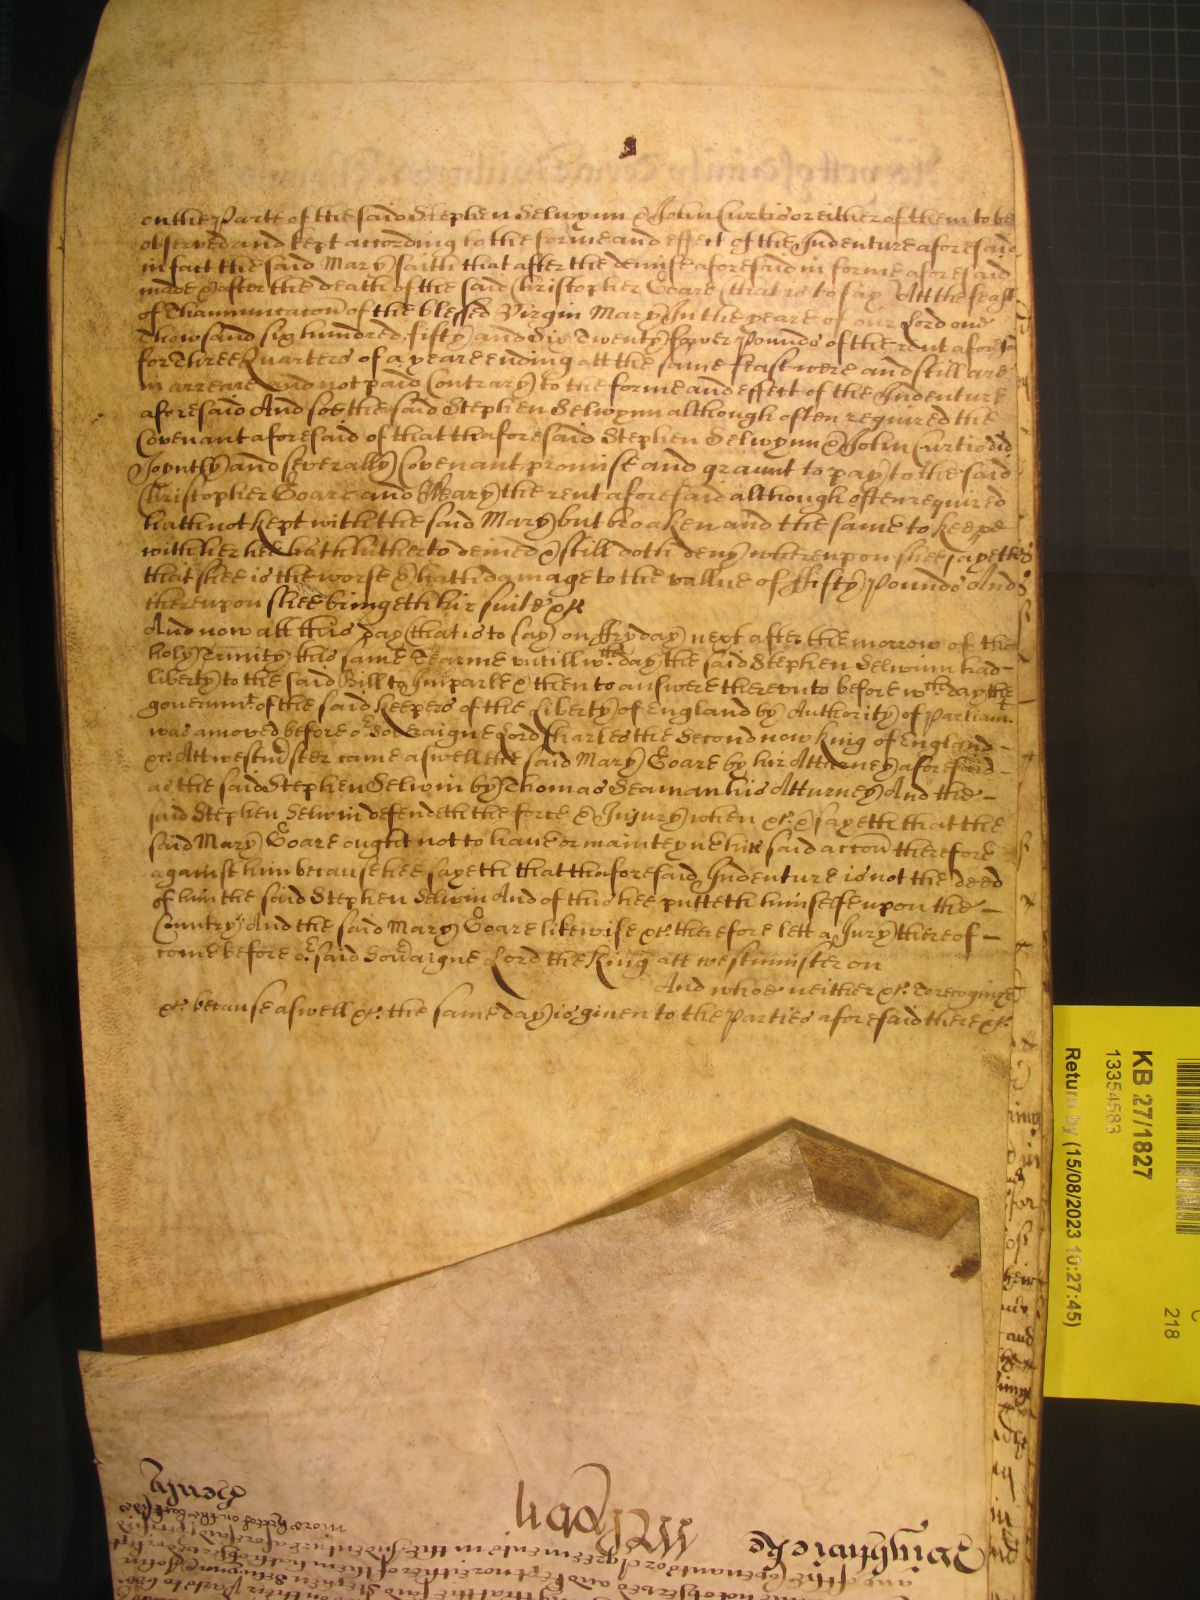 on the Parte of the said Stephen Selwynn & John Curtis or either of them to be
observed and kept according to the forme and effect of the Indenture aforesaid
in fact the said Mary saith that after the demise aforesaid in forme aforesaid
made & after the death of the said Christopher Goare (that is to say) Att the feast
of Thannunciacon of the blessed Virgin Mary In the yeare of our Lord one
Thowsand six hundred fifty and Six Twenty fower Pounds of the rent aforesaid
for Three Quarters of a yeare ending att the same feast were and still are
in arreare and not paid Contrary to the forme and effect of the Indenture
aforesaid And soe the said Stephen Selwynn although often required the
Covenant aforesaid of that thaforesaid Stephen Selwynn & John Curtis did
Joyntly and severally Covenant promise and graunt to pay to the said
Christopher Goare and Mary the rent aforesaid although often required
hath not kept with the said Mary but broaken and the same to keepe
with her hee hath hitherto denied & still doth deny whereupon shee sayeth
that shee is the worse & hath damage to the vallue of ffifty Pounds And
thereupon shee bringeth hir suite &c
And now att this day (that is to say) on ffryday next after the morrow of the
holy Trinity this same Tearme untill wch day the said Stephen Selwinn had
liberty to the said Bill to Imparle & then to answere thereunto before wch day the
governmt of the said Keepers of the Liberty of England by Authority of Parliam
was amoved before or Soveraigne Lord Charles the Second now King of England
&c Att Westminster came aswell the said Mary Goare by hir Atturney aforesaid
as the said Stephen Selwin by Thomas Seaman his Atturney And the
said Stephen Selwin defendeth the force & Injury when &c & sayeth that the
said Mary Goare ought not to have or mainteyne hir said accon therefore
against him because hee sayeth that thaforesaid Indenture is not the deed
of him the said Stephen Selwin And of this hee putteth himselfe upon the
Country And the said Mary Goare likewise &c therefore lett a Jury thereof
come before or said Soveraigne Lord the King att Westminster on
And whoe neither &c To recognize
&c because aswell &c the same day is given to the Parties aforesaid there &c
KB 27/1827
13354583
Return by (15/08/2023 10:27:45)
218